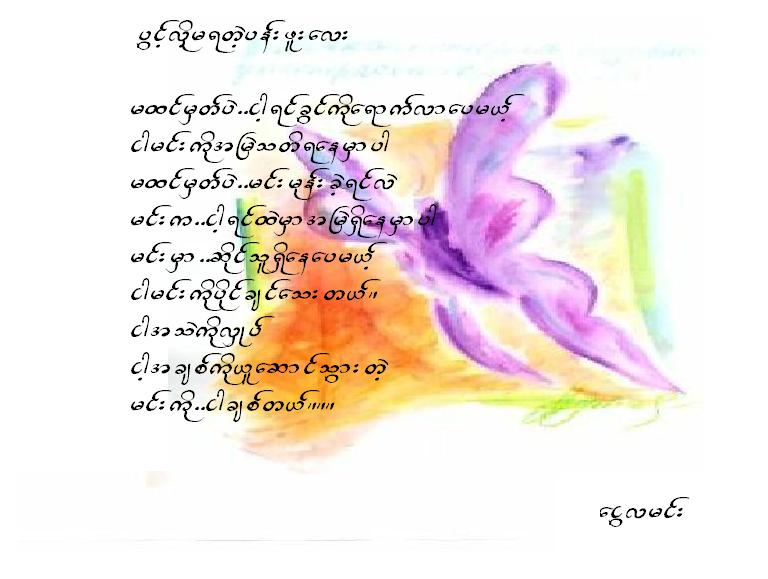 ပွင့်လို့မရတဲ့ပန်းဖူးလေး
မထင်မှတ်ပဲ..ငါ့ရင်ခွင်ကိုရောက်လာပေမယ့်
ငါမင်းကိုအမြဲသတိရနေမှာပါ
မထင်မှတ်ပဲ..မင်းမုန်းခဲ့ရင်လဲ
မင်းက..ငါ့ရင်ထဲမှာအမြဲရှိနေမှာပါ
မင်းမှာ..ဆိုင်သူရှိနေပေမယ့်
ငါမင်းကိုပိုင်ချင်သေးတယ်။
ငါအသဲကိုလှုပ်
ငါ့အချစ်ကိုယူဆောင်သွားတဲ့
မင်းကို..ငါချစ်တယ်။။။
ငွေလမင်း